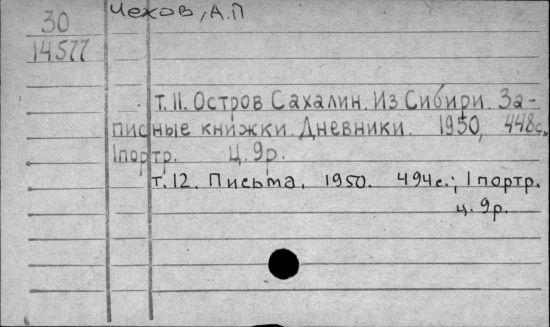 Чехов, А.П
30
14577
т. II. Остров Сахалин. Из Сибири. За-
писные книжки. Дневники. 1950, 448с.,
1портр. Ц. 9р.
т. 12. Письма. 1950. 494с.; 1 портр.
ц. 9р.